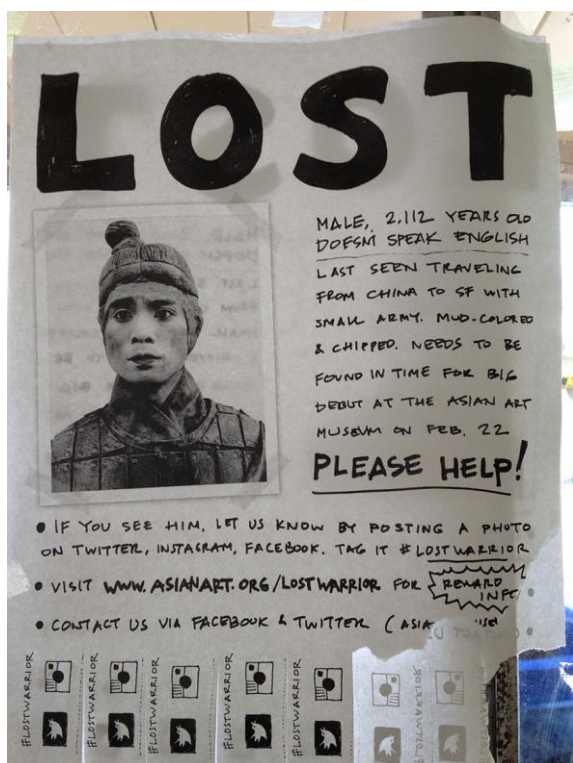 LOST
MALE, 2,112 YEARS OLD
DOESN'T SPEAK ENGLISH
LAST SEEN TRAVELING
FROM CHINA TO SF WITH
SMALL ARMY. MUD-COLORED
& CHIPPED. NEEDS TO BE
FOUND IN TIME FOR BIG
DEBUT AT THE ASIAN ART
MUSEUM ON FEB. 22
PLEASE HELP!
• IF YOU SEE HIM, LET US KNOW BY POSTING A PHOTO
ON TWITTER, INSTAGRAM, FACEBOOK. TAG IT #LOSTWARRIOR
• VISIT WWW.ASIANART.ORG/LOSTWARRIOR FOR REWARD
INFO
• CONTACT US VIA FACEBOOK & TWITTER (ASIA
#LOSTWARRIOR
#LOSTWARRIOR
#LOSTWARRIOR
#LOSTWARRIOR
#LOSTWARRIOR